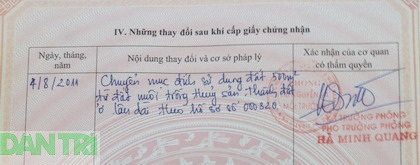 IV. Những thay đổi sau khi cấp giấy chứng nhận
Ngày, tháng, năm
Nội dung thay đổi và cơ sở pháp lý
Xác nhận của cơ quan có thẩm quyền
4/8/2011
Chuyển mục đích sử dụng đất 500m²
từ đất nuôi trồng thủy sản thành đất
ở lâu dài theo hồ sơ số 000320
PHÓ TRƯỞNG PHÒNG
HÀ MINH QUANG
DÂN TRÍ